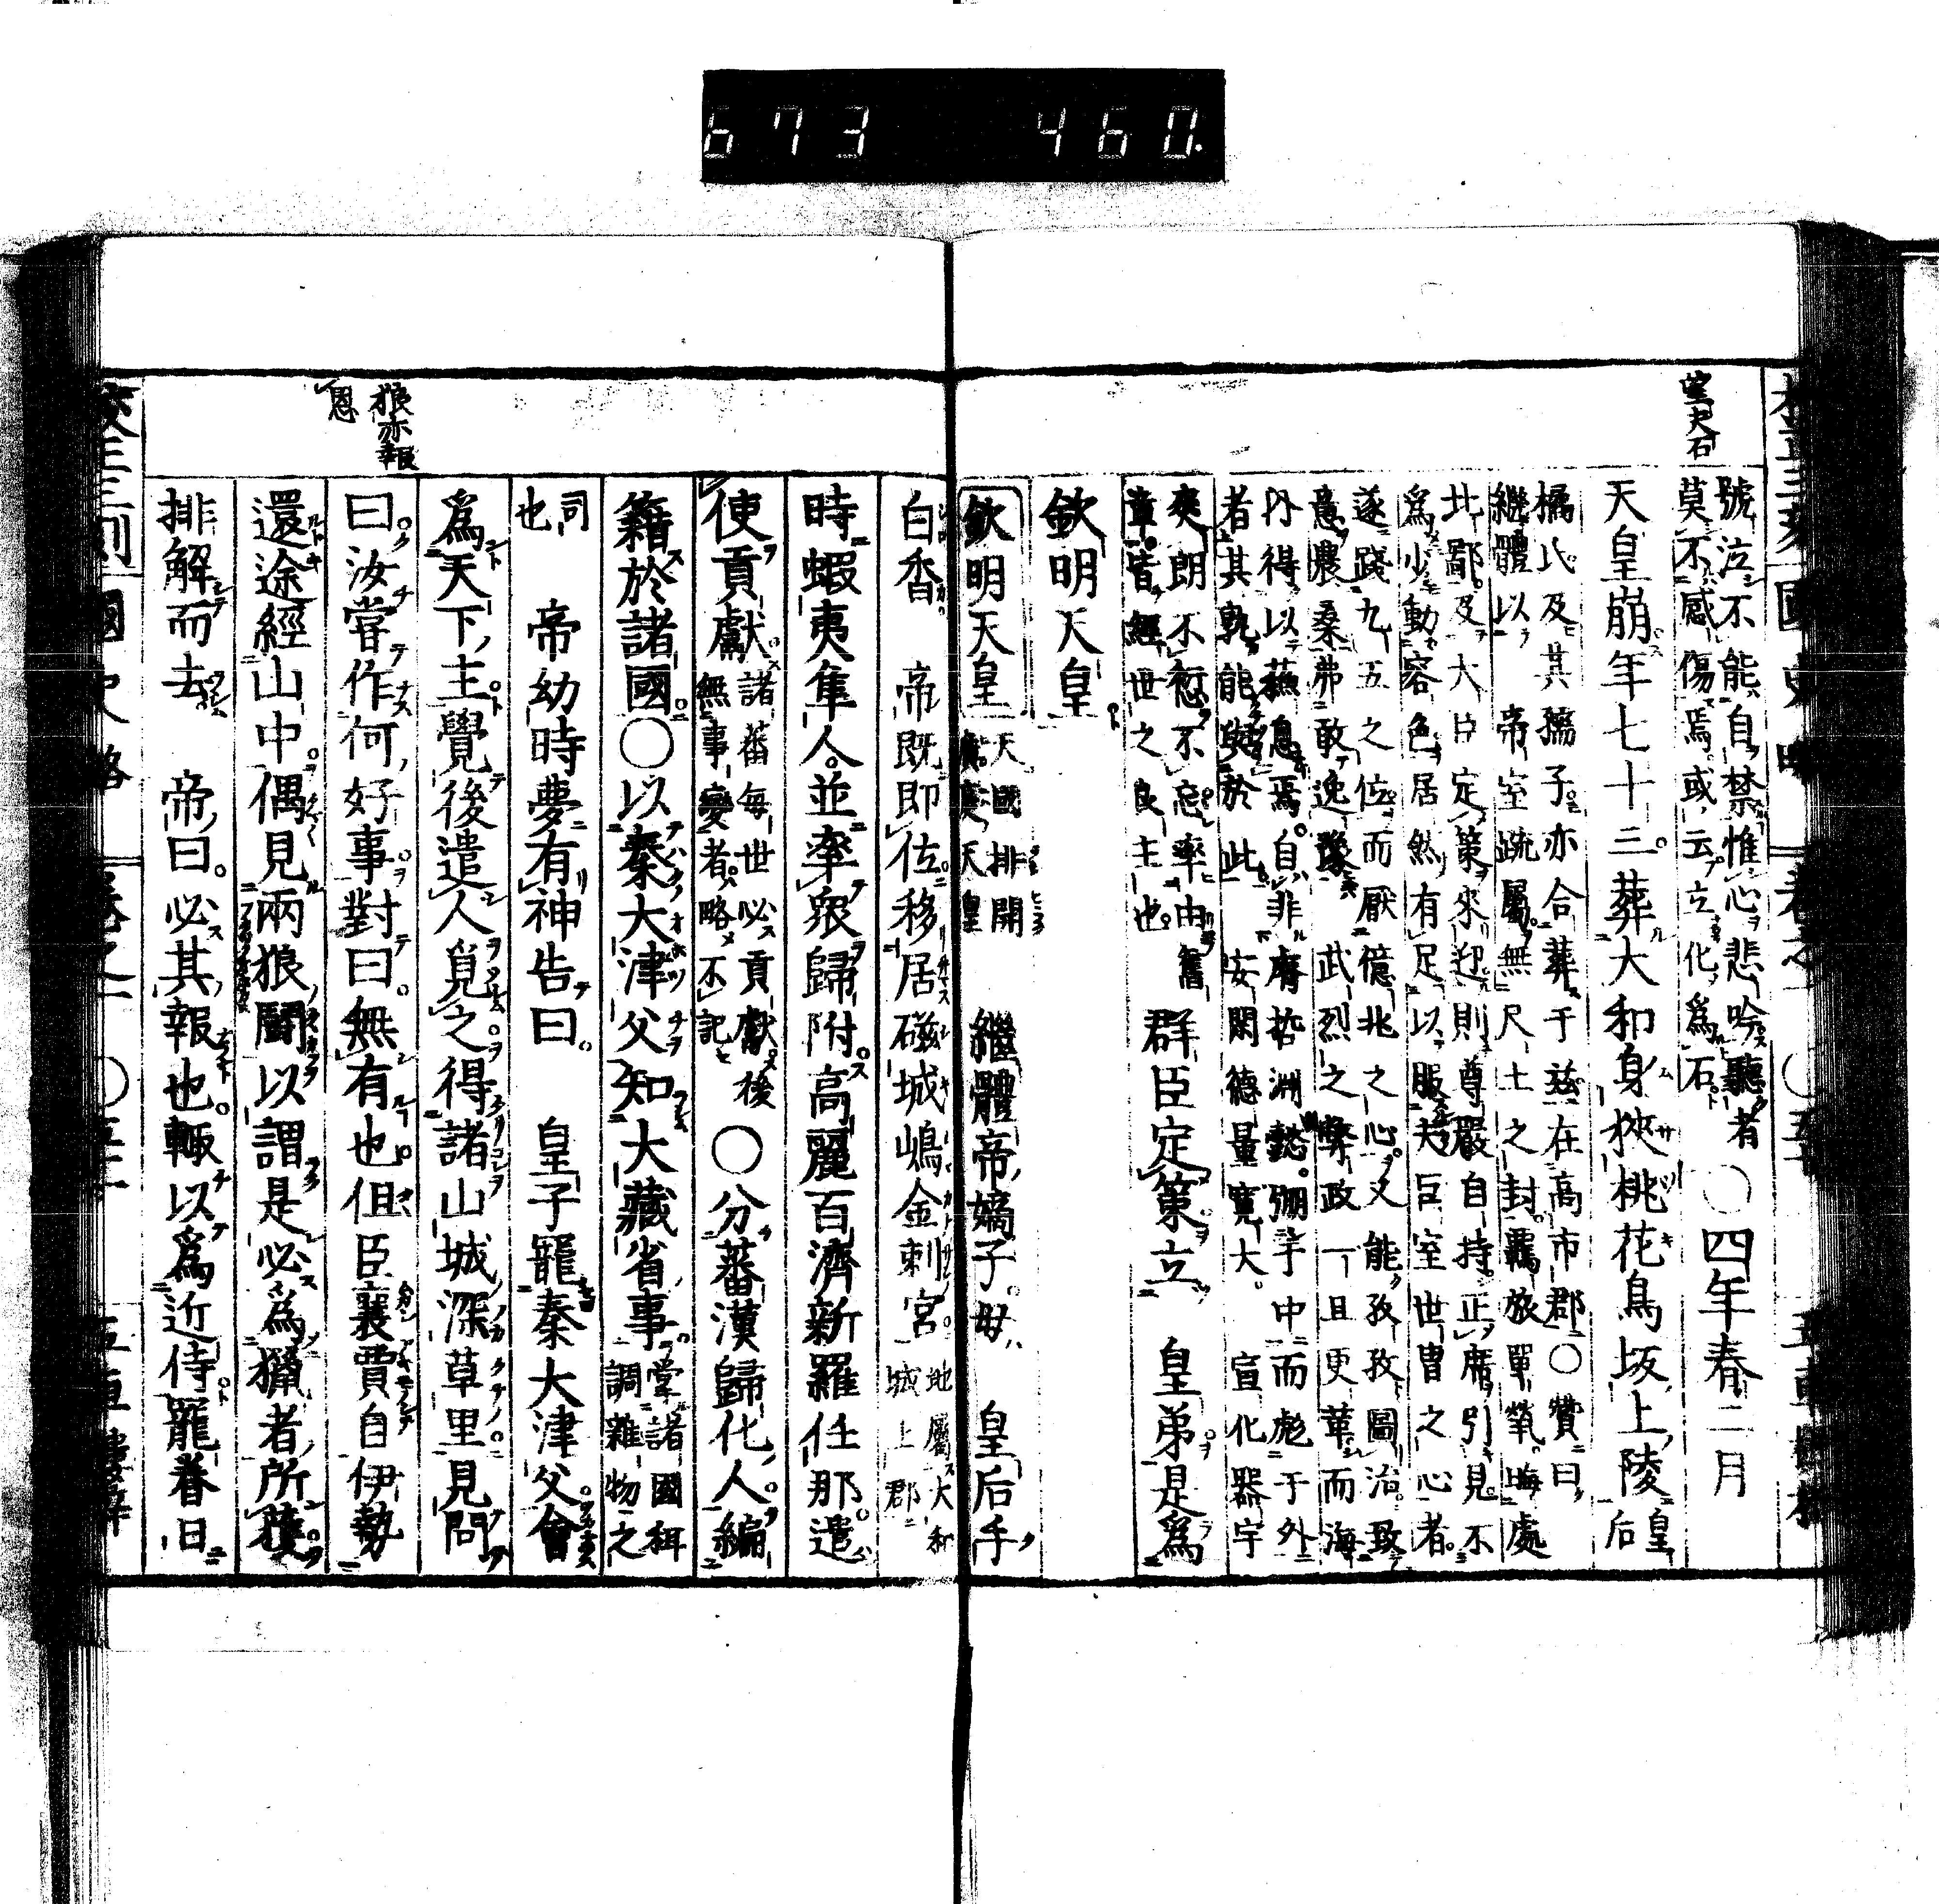 673 460.
望夫石
號泣不能自禁惟心悲吟聽者
莫不感傷焉或云立化爲石
〇四年春二月
天皇崩年七十三葬大和身狹桃花鳥坂上陵皇后
橘氏及其孺子亦合葬于茲在高市郡〇贊曰
繼體以 帝室疏屬無尺土之封羈旅單煢晦處
北鄙及大臣定策來迎則尊嚴自持正席引見不
爲少動容色居然有足以服夫巨室世胄之心者
遂踐九五之位而厭億兆之心又能孜孜圖治致
意農桑弗敢逸豫 武烈之弊政一且更革而海
內得以蘇息焉自非睿哲淵懿弸乎中而彪于外
者其孰能與於此 安閑德量寬大 宣化器宇
爽朗不愆不忘率由舊
章皆經世之良主也
群臣定策立 皇弟是爲
欽明天皇
欽明天皇
天國排開
廣庭天皇
繼體帝嫡子母 皇后手
白香 帝既即位移居磯城嶋金刺宮
地屬大和
城上郡
時蝦夷隼人並率衆歸附高麗百濟新羅任那遣
使貢獻
諸蕃每世必貢獻後
無事變者略不記
〇分蕃漢歸化人編
籍於諸國〇以秦大津父知大藏省事
掌諸國租
調雜物之
司
也
帝幼時夢有神告曰 皇子寵秦大津父會
爲天下主覺後遣人覓之得諸山城深草里見問
曰汝嘗作何好事對曰無有也但臣襄賈自伊勢
還途經山中偶見兩狼鬭以謂是必爲獵者所獲
排解而去 帝曰必其報也輙以爲近侍寵眷日
狼亦報
恩